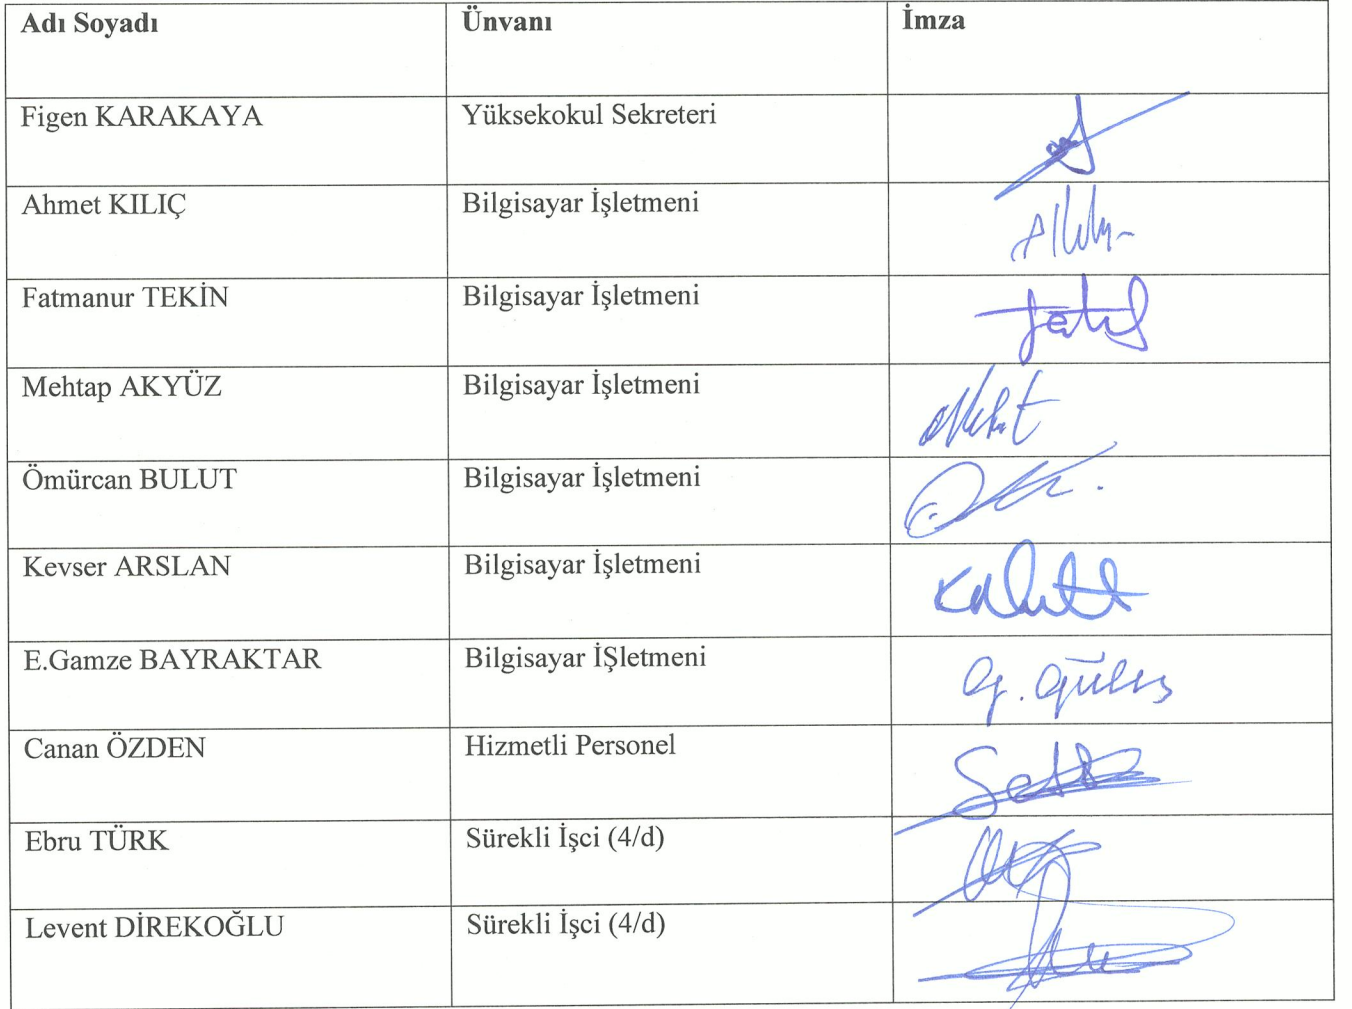 Adı Soyadı Ünvanı İmza
Figen KARAKAYA Yüksekokul Sekreteri
Ahmet KILIÇ Bilgisayar İşletmeni
Fatmanur TEKİN Bilgisayar İşletmeni
Mehtap AKYÜZ Bilgisayar İşletmeni
Ömürcan BULUT Bilgisayar İşletmeni
Kevser ARSLAN Bilgisayar İşletmeni
E.Gamze BAYRAKTAR Bilgisayar İŞletmeni
Canan ÖZDEN Hizmetli Personel
Ebru TÜRK Sürekli İşci (4/d)
Levent DİREKOĞLU Sürekli İşci (4/d)